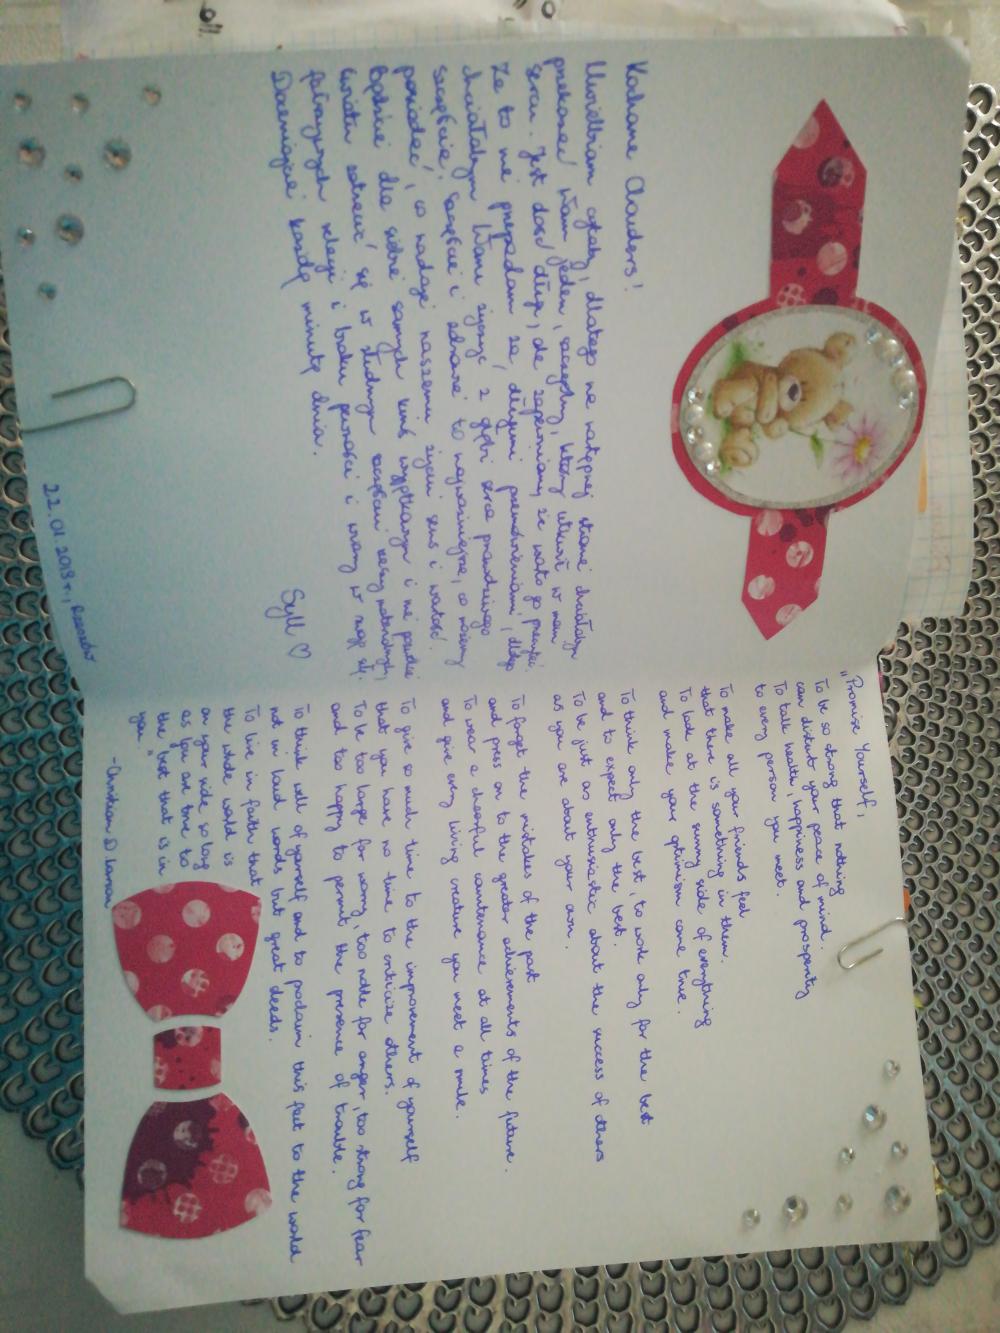 Kochane Clouders!
Uwielbiam cytaty, dlatego na następnej stronie chciałabym
przekazać Wam jeden, szczególny, który utkwił w mem
sercu. Jest dość długi, ale zapewniam, że warto go przeczytać.
Za to nie przepadam za długimi przemówieniami, dlatego
chciałabym Wam życzyć z głębi serca prawdziwego
szczęścia. Szczęście i zdrowie to najważniejsze, co możemy
posiadać, co nadaje naszemu życiu sens i wartość.
Bądźcie dla siebie samych kimś wyjątkowym i nie
światu zatracić się w złudnym szczęściu rzeczy materialnych,
fałszywych relacji i braku pewności i wiary w
Doceniajcie każdą minutę dnia.
Syll ♡
22.01.2019r., Rzeszów
"Promise Yourself,
To be so strong that nothing
can disturb your peace of mind.
To talk health, happiness and prosperity
to every person you meet.
To make all your friends feel
that there is something in them.
To look at the sunny side of everything
and make your optimism come true.
To think only the best, to work only for the best
and to expect only the best.
To be just as enthusiastic about the success of others
as you are about your own.
To forget the mistakes of the past
and press on to the greater achievements of the future.
To wear a cheerful countenance at all times
and give every living creature you meet a smile.
To give so much time to the improvement of yourself
that you have no time to criticize others.
To be too large for worry, too noble for anger, too strong for fear
and too happy to permit the presence of trouble.
To think well of yourself and to proclaim this fact to the world
not in loud words but great deeds.
To live in faith that
the whole world is
on your side so long
as you are true to
the best that is in
you."
-Christian D. Larson